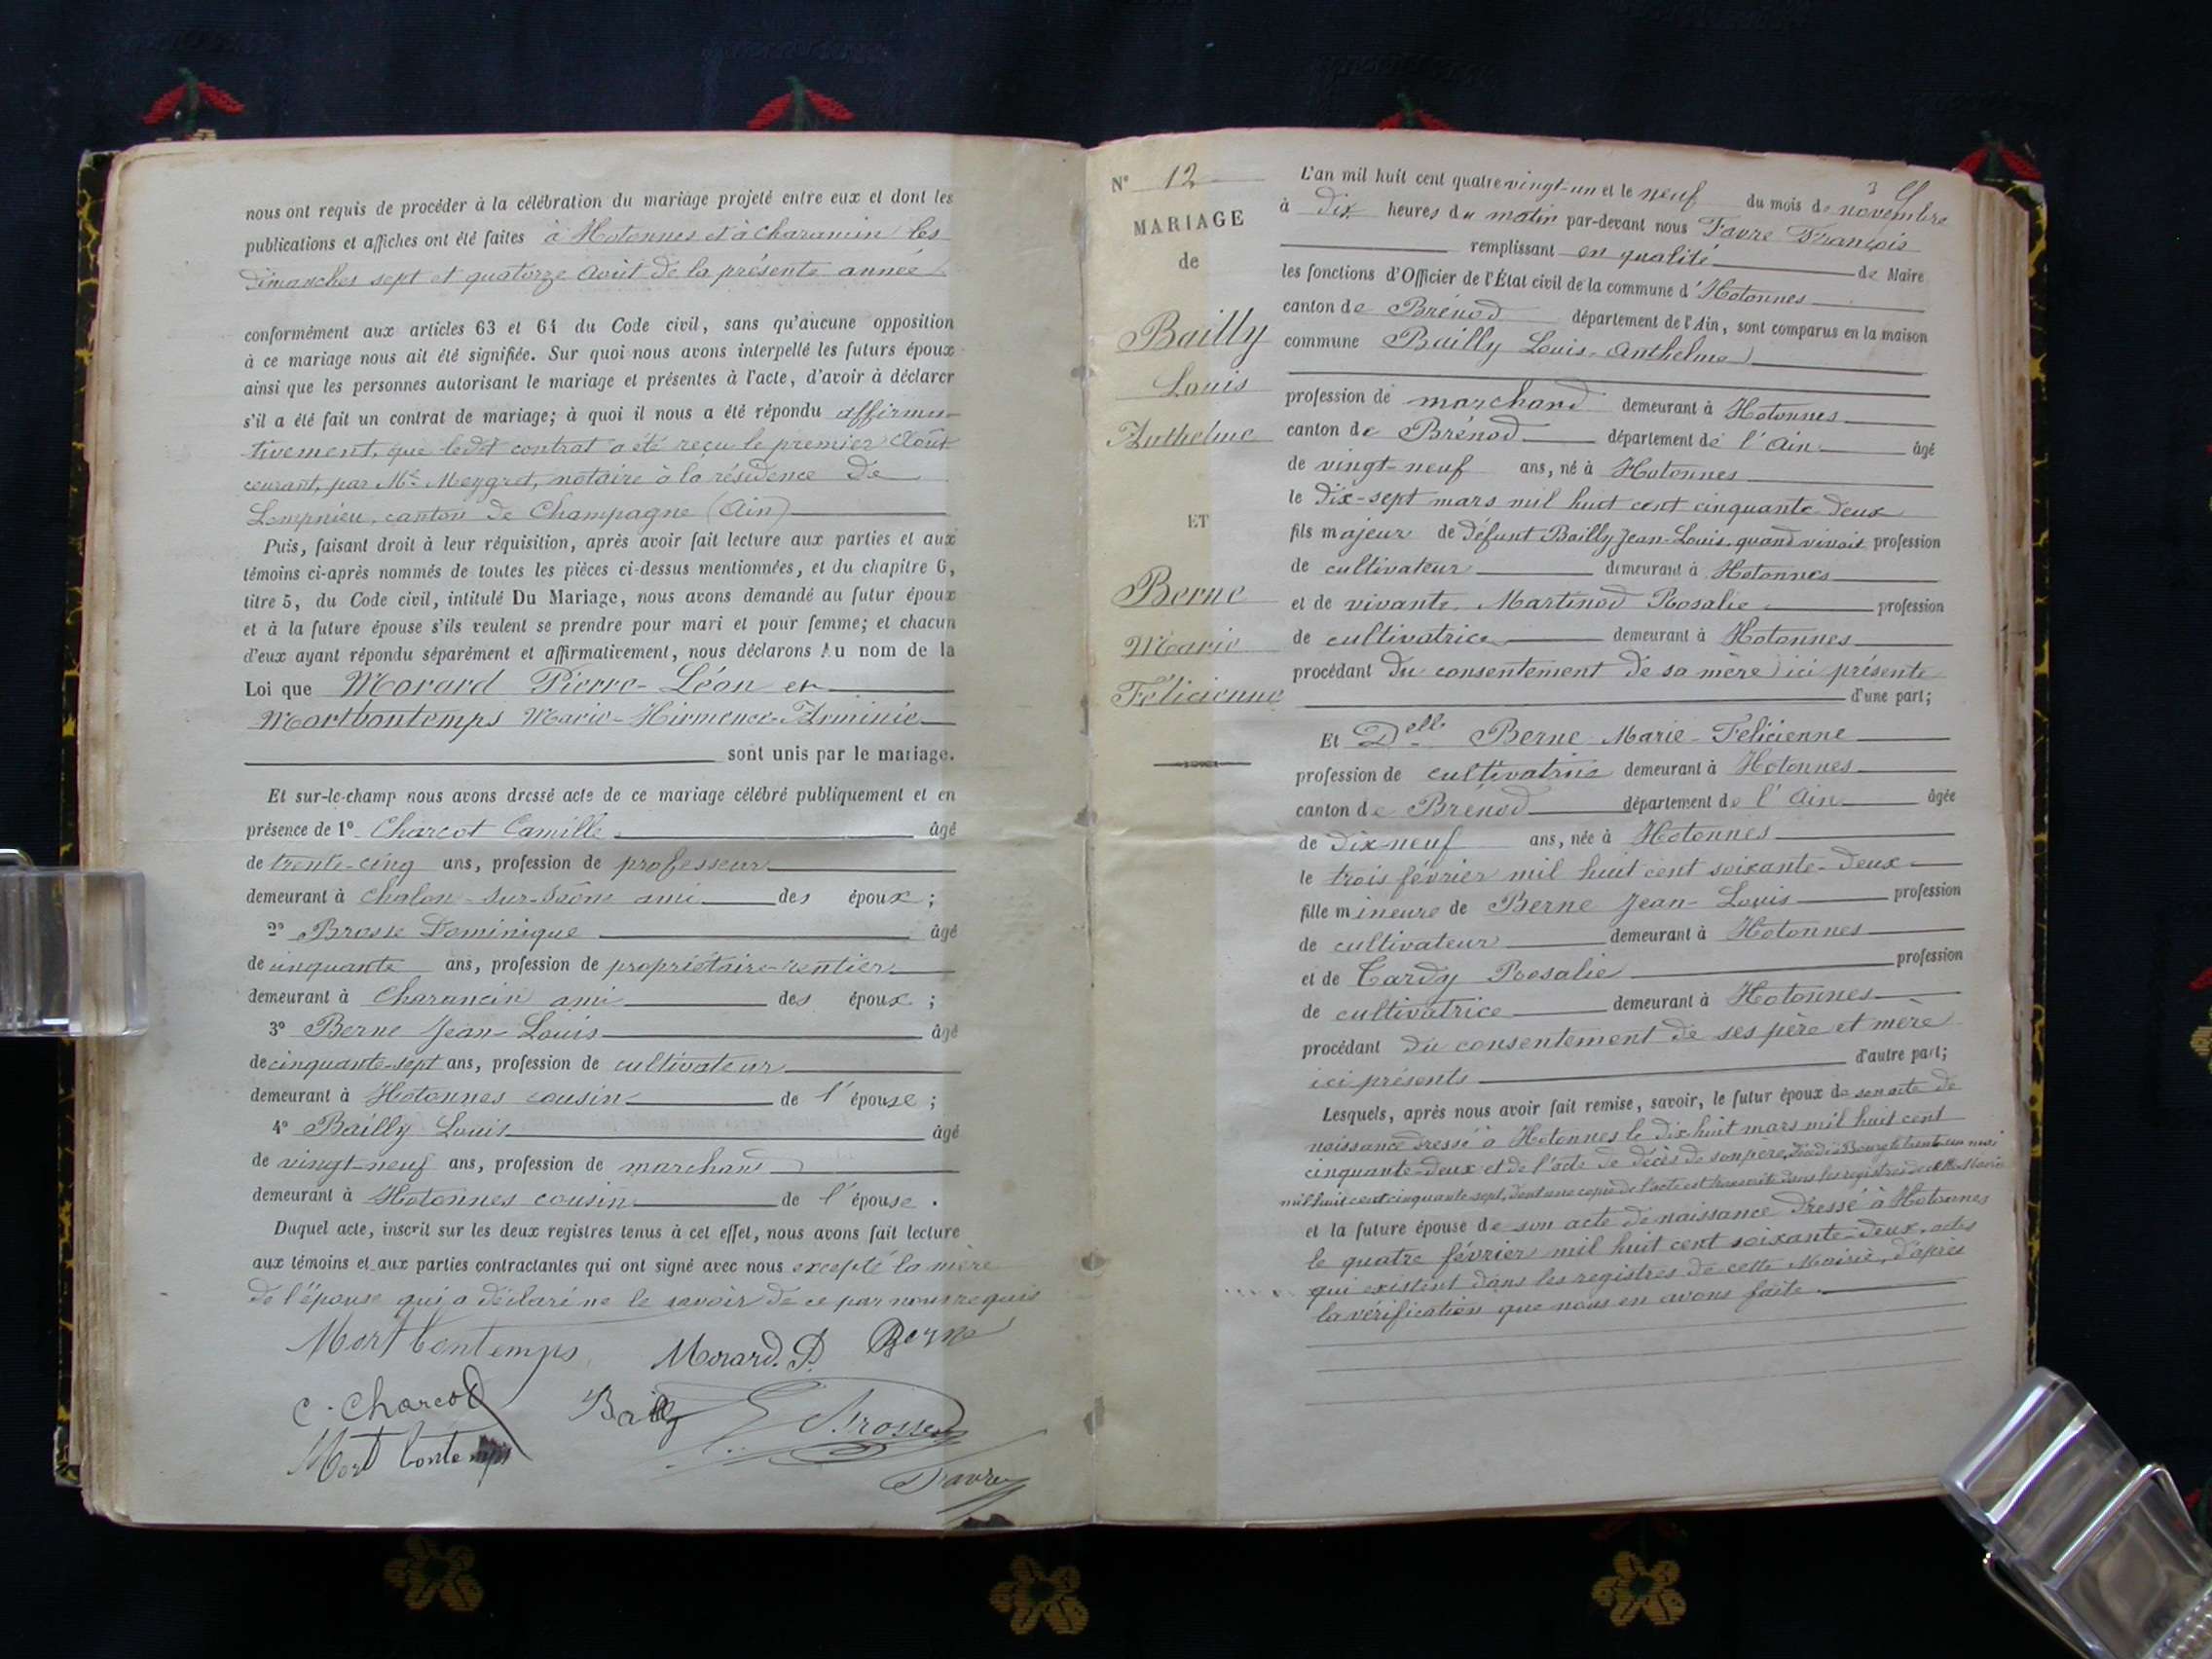 nous ont requis de procéder à la célébration du mariage projeté entre eux et dont les
publications et affiches ont été faites à Hotonnes et à Charancin les
dimanches sept et quatorze Août de la présente année
conformément aux articles 63 et 64 du Code civil, sans qu'aucune opposition
à ce mariage nous ait été signifiée. Sur quoi nous avons interpellé les futurs époux
ainsi que les personnes autorisant le mariage et présentes à l'acte, d'avoir à déclarer
s'il a été fait un contrat de mariage; à quoi il nous a été répondu affirma-
tivement, que ledit contrat a été reçu le premier Août
courant, par Me Meygret, notaire à la résidence de
Lompnieu, canton de Champagne (Ain)
Puis, faisant droit à leur réquisition, après avoir fait lecture aux parties et aux
témoins ci-après nommés de toutes les pièces ci-dessus mentionnées, et du chapitre 6,
titre 5, du Code civil, intitulé Du Mariage, nous avons demandé au futur époux
et à la future épouse s'ils veulent se prendre pour mari et pour femme; et chacun
d'eux ayant répondu séparément et affirmativement, nous déclarons Au nom de la
Loi que Morard Pierre-Léon et
Mortbontemps Marie-Hermence-Arminie
sont unis par le mariage.
Et sur-le-champ nous avons dressé acte de ce mariage célébré publiquement et en
présence de 1° Charcot Camille âgé
de trente-cinq ans, profession de professeur
demeurant à Chalon-sur-Saône ami des époux ;
2° Brosse Dominique âgé
de cinquante ans, profession de propriétaire-rentier
demeurant à Charancin ami des époux ;
3° Berne Jean-Louis âgé
de cinquante-sept ans, profession de cultivateur
demeurant à Hotonnes cousin de l'épouse ;
4° Bailly Louis âgé
de vingt-neuf ans, profession de marchand
demeurant à Hotonnes cousin de l'épouse .
Duquel acte, inscrit sur les deux registres tenus à cet effet, nous avons fait lecture
aux témoins et aux parties contractantes qui ont signé avec nous excepté la mère
de l'épouse qui a déclaré ne le savoir de ce par nous requis
Mortbontemps Morard. P. Berne
C. Charcot Bailly Brosse
Mort bontemps
Favre
N° 12
MARIAGE
de
Bailly
Louis
Anthelme
ET
Berne
Marie
Félicienne
L'an mil huit cent quatre vingt-un et le neuf du mois de novembre
à dix heures du matin par-devant nous Favre François
remplissant en qualité de Maire
les fonctions d'Officier de l'État civil de la commune d'Hotonnes
canton de Brénod département de l'Ain, sont comparus en la maison
commune Bailly Louis-Anthelme
profession de marchand demeurant à Hotonnes
canton de Brénod département de l'Ain âgé
de vingt-neuf ans, né à Hotonnes
le dix-sept mars mil huit cent cinquante-deux
fils majeur de défunt Bailly Jean-Louis, quand vivait profession
de cultivateur demeurant à Hotonnes
et de vivante Martinod Rosalie profession
de cultivatrice demeurant à Hotonnes
procédant du consentement de sa mère ici présente
d'une part;
Et Delle Berne Marie-Félicienne
profession de cultivatrice demeurant à Hotonnes
canton de Brénod département de l'Ain âgée
de dix-neuf ans, née à Hotonnes
le trois février mil huit cent soixante-deux
fille mineure de Berne Jean-Louis profession
de cultivateur demeurant à Hotonnes
et de Tardy Rosalie profession
de cultivatrice demeurant à Hotonnes
procédant du consentement de ses père et mère
ici présents d'autre part;
Lesquels, après nous avoir fait remise, savoir, le futur époux de son acte de
naissance dressé à Hotonnes le dix-huit mars mil huit cent
cinquante-deux et de l'acte de décès de son père, décédé à Bourg le trente-un mai
mil huit cent cinquante-sept, dont une copie de l'acte est transcrite dans les registres de cette Mairie
et la future épouse de son acte de naissance dressé à Hotonnes
le quatre février mil huit cent soixante-deux, actes
qui existent dans les registres de cette Mairie, d'après
la vérification que nous en avons faite.